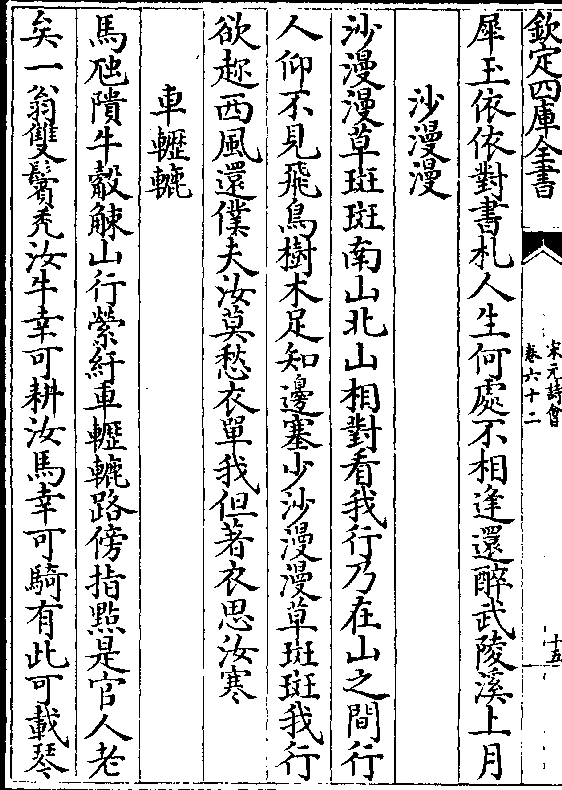 欽定四庫全書
宋元詩會
卷六十二
十五
犀玉依依對書札人生何處不相逢還醉武陵溪上月
沙漫漫
沙漫漫草斑斑南山北山相對看我行乃在山之間行
人仰不見飛鳥樹木足知邊塞少沙漫漫草斑斑我行
欲趂西風還僕夫汝莫愁衣單我但著衣思汝寒
車轣轆
馬虺隤牛觳觫山行縈紆車轣轆路傍指點是官人老
矣一翁雙鬢秃汝牛幸可耕汝馬幸可騎有此可載琴